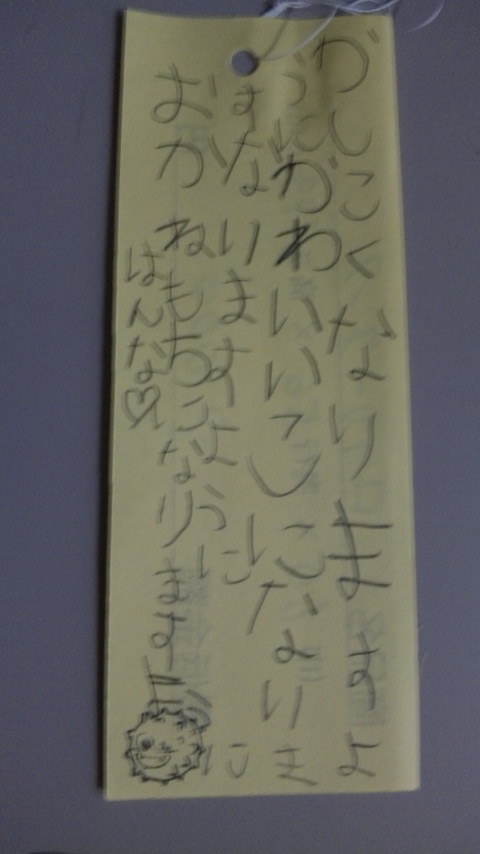 かしこくなりますよ
うにかわいいこになりま
すなりますように
おかねもちになりますように
はんな♡